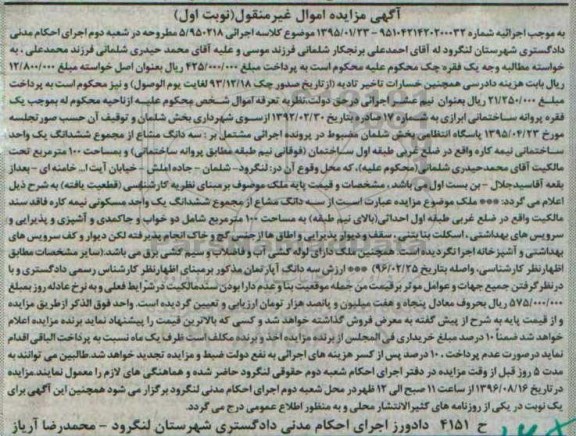 آگهی مزایده اموال غیرمنقول(نوبت اول)
به موجب اجرائیه شماره ۹۵۱۰۴۲۱۴۲۰۲۰۰۰۳۲ - ۱۳۹۵/۰۱/۲۳ موضوع کلاسه اجرائی ۵/۹۵۰۲۱۸ مطروحه در شعبه دوم اجرای احکام مدنی
دادگستری شهرستان لنگرود له آقای احمدعلی برنجکار شلمانی فرزند موسی و علیه آقای محمد حیدری شلمانی فرزند محمدعلی، به
خواسته مطالبه وجه یک فقره چک محکوم علیه محکوم است به پرداخت مبلغ ۴۲۵/۰۰۰/۰۰۰ ریال بعنوان اصل خواسته مبلغ ۱۲/۸۰۰/۰۰۰
ریال بابت هزینه دادرسی همچنین خسارات تاخیر تادیه (از تاریخ صدور چک ۹۳/۱۲/۱۸ لغایت یوم الوصول) و نیز محکوم است به پرداخت
مبلغ ۲۱/۲۵۰/۰۰۰ ریال بعنوان نیم عشر اجرائی در حق دولت، نظر به تعرفه اموال شخص محکوم علیه از ناحیه محکوم له بموجب یک
فقره پروانه ساختمانی ابرازی به شماره ۱۷ صادره بتاریخ ۱۳۹۲/۰۲/۳۰ از سوی شهرداری بخش شلمان و توقیف آن حسب صورتجلسه
مورخ ۱۳۹۵/۰۴/۲۳ پاسگاه انتظامی بخش شلمان مضبوط در پرونده اجرائی مشتمل بر : سه دانگ مشاع از مجموع ششدانگ یک واحد
ساختمانی نیمه کاره واقع در ضلع غربی طبقه اول ساختمان (فوقانی نیم طبقه مطابق پروانه ساختمانی) و بمساحت ۱۰۰ مترمربع تحت
مالکیت آقای محمد حیدری شلمانی(محکوم علیه)، که محل وقوع آن در: لنگرود- شلمان - جاده املش - خیابان آیت ا... خامنه ای - بعد از
بقعه آقا سید جلال - بن بست اول می باشد ، مشخصات و قیمت پایه ملک موصوف بر مبنای نظریه کارشناسی (قطعیت یافته) به شرح ذیل
اعلام می گردد: *** ملک موضوع مزایده عبارت است از سه دانگ مشاع از مجموع ششدانگ یک واحد مسکونی نیمه کاره فاقد سند
مالکیت واقع در ضلع غربی طبقه اول احداثی(بالای نیم طبقه) به مساحت ۱۰۰ مترمربع شامل دو خواب و جاکمدی و آشپزی و پذیرایی و
سرویس های بهداشتی ، اسکلت بنا بتنی ، سقف و دیوار پذیرایی و اطاق ها از جنس گچ و خاک انجام پذیرفته لکن دیوار و کف سرویس های
بهداشتی و آشپزخانه اجرا نگردیده است. همچنین ملک دارای لوله کشی آب و فاضلاب و سیم کشی برق می باشد.(سایر مشخصات مطابق
اظهارنظر کارشناسی، واصله بتاریخ ۹۶/۰۲/۲۵) *** ارزش سه دانگ آپارتمان مذکور بر مبنای اظهارنظر کارشناس رسمی دادگستری و با
در نظر گرفتن جمیع جهات و عوامل موثر بر قیمت من جمله موقعیت بنا و عدم دارا بودن سند مالکیت در شرایط فعلی و به نرخ عادله روز بمبلغ
۵۷۵/۰۰۰/۰۰۰ ریال بحروف معادل پنجاه و هفت میلیون و پانصد هزار تومان ارزیابی و تعیین گردیده است. واحد فوق الذکر از طریق مزایده
و از قیمت پایه به شرح از پیش گفته به معرض فروش گذاشته خواهد شد و کسی که بالاترین قیمت را پیشنهاد نماید برنده مزایده اعلام
خواهد شد ضمناً ۱۰ درصد مبلغ خریداری فی المجلس از برنده مزایده اخذ و برنده مکلف است ظرف یک ماه نسبت به پرداخت الباقی اقدام
نماید در صورت عدم پرداخت ، ۱۰ درصد پس از کسر هزینه های اجرائی به نفع دولت ضبط و مزایده تجدید خواهد شد.طالبین می توانند به
مدت ۵ روز قبل از وقت مزایده در دفتر اجرای احکام شعبه دوم حقوقی لنگرود حاضر شده و هماهنگی های لازم را معمول نمایند.مزایده
در تاریخ ۱۳۹۶/۰۸/۱۶ از ساعت ۱۱ صبح الی ۱۲ ظهر در محل شعبه دوم اجرای احکام مدنی لنگرود برگزار می شود همچنین این آگهی برای
یک نوبت در یکی از روزنامه های کثیرالانتشار محلی و به منظور اطلاع عمومی درج می گردد.
ح ۴۱۵۱ دادورز اجرای احکام مدنی دادگستری شهرستان لنگرود - محمدرضا آریاز